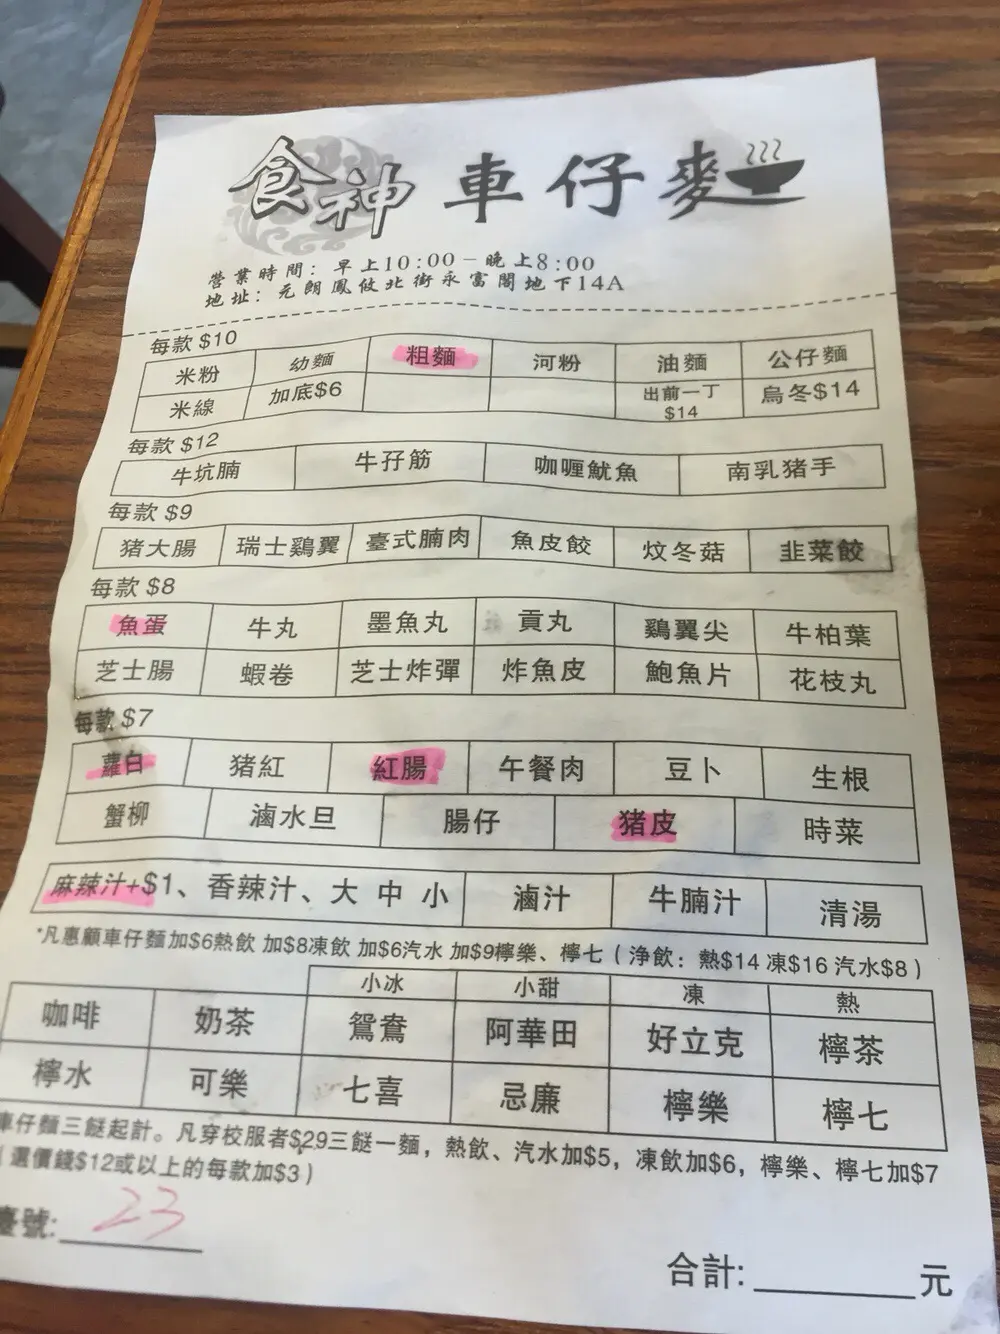 食神 車仔麥
營業時間：早上10:00－晚上8:00
地址：元朗鳳攸北街永富閣地下14A
每款 $10
米粉 幼麵 粗麵 河粉 油麵 公仔麵
米線 加底$6 出前一丁 $14 烏冬$14
每款 $12
牛坑腩 牛孖筋 咖喱魷魚 南乳猪手
每款 $9
猪大腸 瑞士鷄翼 臺式腩肉 魚皮餃 炆冬菇 韭菜餃
每款 $8
魚蛋 牛丸 墨魚丸 貢丸 鷄翼尖 牛柏葉
芝士腸 蝦卷 芝士炸彈 炸魚皮 鮑魚片 花枝丸
每款 $7
蘿白 猪紅 紅腸 午餐肉 豆卜 生根
蟹柳 滷水旦 腸仔 猪皮 時菜
麻辣汁+$1、香辣汁、大 中 小 滷汁 牛腩汁 清湯
*凡惠顧車仔麵加$6熱飲 加$8凍飲 加$6汽水 加$9檸樂、檸七（淨飲：熱$14 凍$16 汽水$8）
小冰 小甜 凍 熱
咖啡 奶茶 鴛鴦 阿華田 好立克 檸茶
檸水 可樂 七喜 忌廉 檸樂 檸七
車仔麵三餸起計。凡穿校服者$29三餸一麵，熱飲、汽水加$5，凍飲加$6，檸樂、檸七加$7
（選價錢$12或以上的每款加$3）
臺號: 23
合計: 元